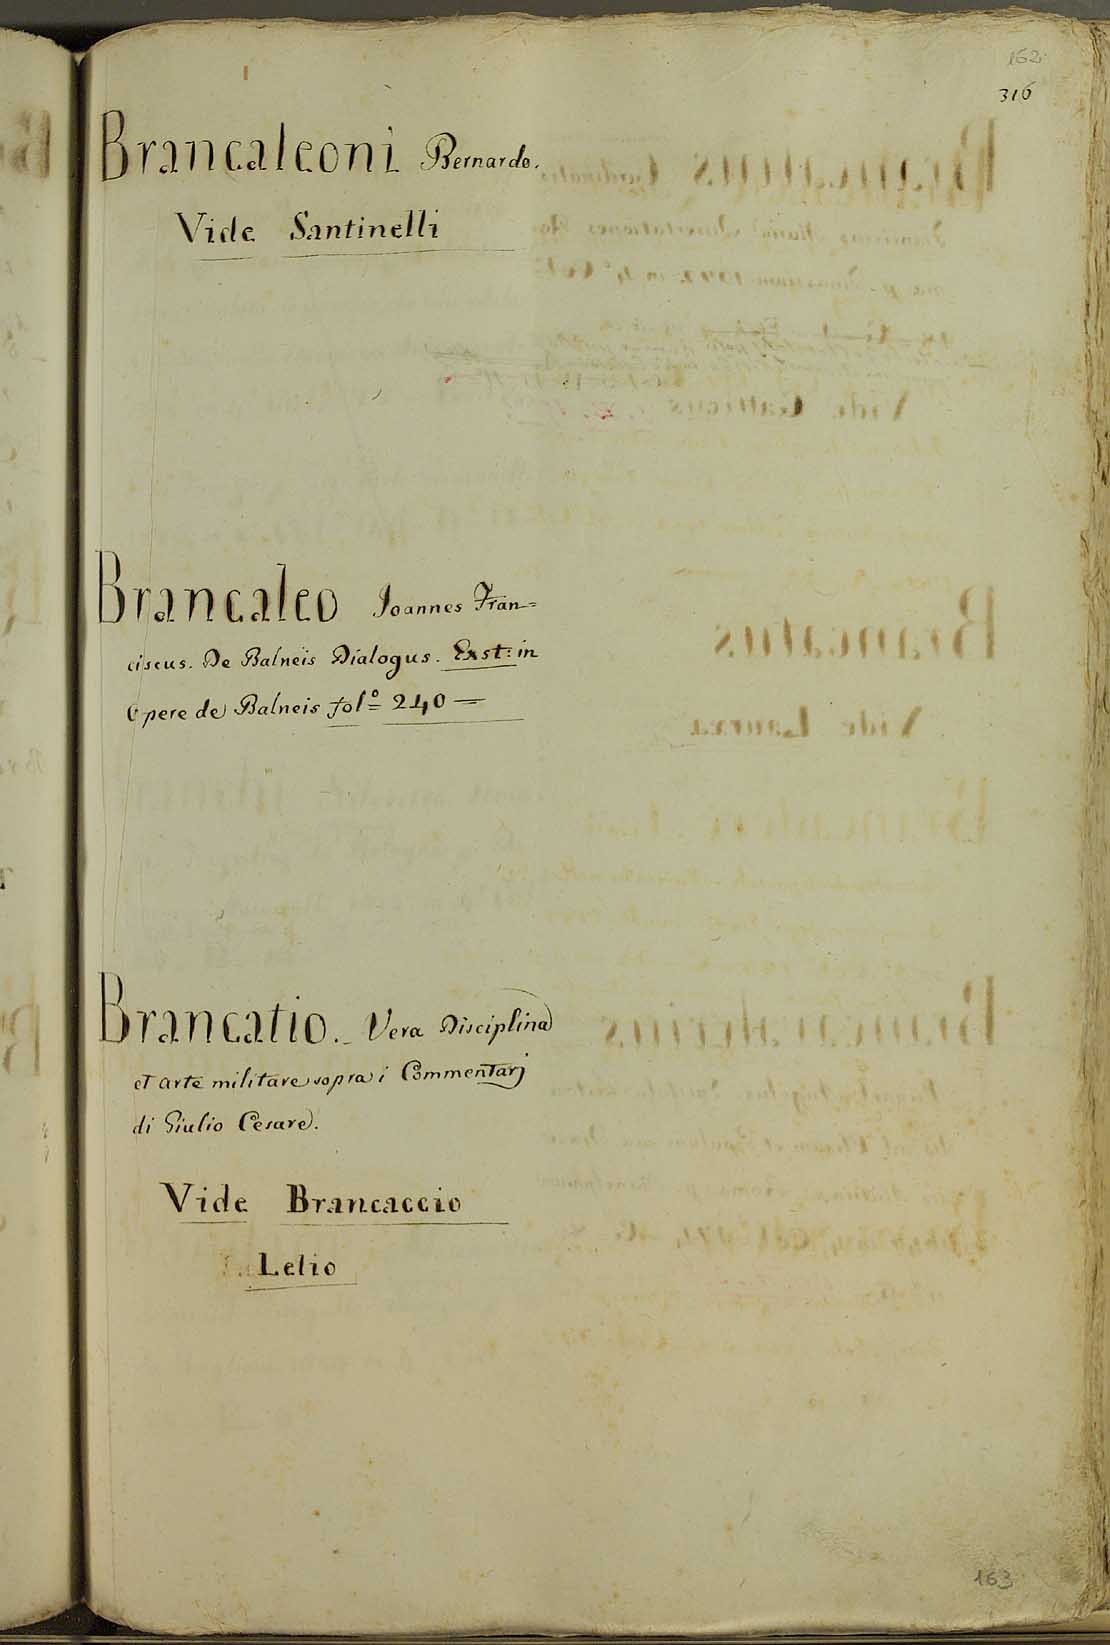 162
316
Brancaleoni Bernardo.
Vide Santinelli
Brancaleo Joannes Fran=
ciscus. De Balneis Dialogus. Exst: in
Opere de Balneis folº 240 —
Brancatio. Vera Disciplina
et arte militare sopra i Commentarj
di Giulio Cesare.
Vide Brancaccio
Lelio
163